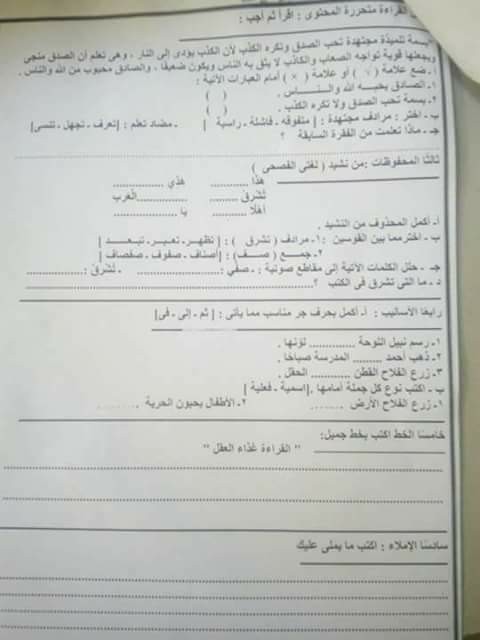 القراءة متحررة المحتوى : اقرأ ثم أجب :
بسمة تلميذة مجتهدة تحب الصدق وتكره الكذب لأن الكذب يؤدى إلى النار . وهى تعلم أن الصدق منجي
ويجعلها قوية تواجه الصعاب والكاذب لا يثق به الناس ويكون ضعيفا . والصادق محبوب من الله والناس .
أ- ضع علامة ( √ ) أو علامة ( × ) أمام العبارات الآتية :
١- الصادق يحبـــه الله والنــــــاس . ( )
٢- بسمة تحب الصدق ولا تكره الكذب . ( )
ب - اختر : مرادف مجتهدة : [ متفوقه - فاشلة - راسبة ] - مضاد تعلم : [تعرف - تجهل - تنسى]
جـ - ماذا تعلمت من الفقرة السابقة ؟
ثالثا المحفوظات : من نشيد ( لغتى الفصحى )
هذا ............ هذي ..............
تشرق ......... ..............الغرب
أهلا .......... يا ................
أ- أكمل المحذوف من النشيد .
ب - اختر مما بين القوسين : ١- مرادف ( تشرق ) : [ تظهر - تعبر - تبعد ]
٢- جمع ( صف ) : [أصناف - صفوف - صفصاف ]
جـ - حلل الكلمات الآتية إلى مقاطع صوتية : - صفي : .................. - تشرق : ..................
د - ما التى تشرق فى الكتب ؟ ..................................................
رابعا الأساليب : أ- أكمل بحرف جر مناسب مما يأتى : [ ثم - إلى - فى]
١- رسم نبيل اللوحة ............. لونها .
٢- ذهب أحمد ........ المدرسة صباحا .
٣- زرع الفلاح القطن ........... الحقل .
ب - اكتب نوع كل جملة أمامها . [اسمية - فعلية ]
١- زرع الفلاح الأرض ....... ٢- الأطفال يحبون الحرية .......
خامسا الخط اكتب بخط جميل:
" القراءة غذاء العقل "
سادسا الإملاء : اكتب ما يملى عليك